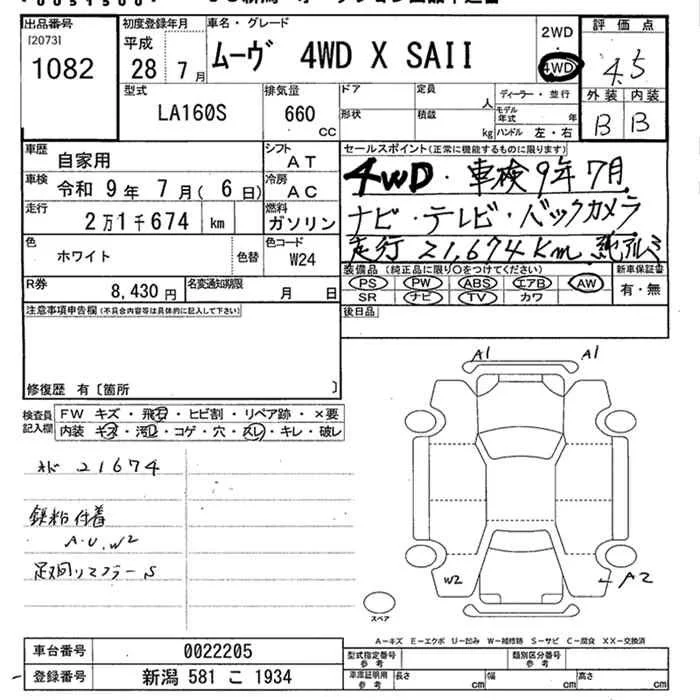 出品番号
[2073]
1082
初度登録年月
平成
28 年 7 月
車名・グレード
ムーヴ 4WD X SAII
2WD
4WD
評価点
4.5
外装 内装
B B
型式
LA160S
排気量
660 CC
ドア
形状
定員
人
積載
kg
ディーラー・並行
モデル年式 年
ハンドル 左・右
車歴
自家用
シフト
AT
車検 令和 9 年 7 月( 6 日)
冷房
AC
走行
2 万 1 千 674 km
燃料
ガソリン
色
ホワイト
色替
色コード
W24
R券
8,430 円
名変通知期限
月 日
セールスポイント(正常に機能するものに限ります)
4WD・車検9年7月
ナビ・テレビ・バックカメラ
走行 21,674km 純アルミ
装備品(純正品に限り○をつけてください)
PS PW ABS エアB AW
SR ナビ TV カワ
新車保証書
有・無
後日品
注意事項申告欄(不具合内容等は具体的に記入して下さい)
修復歴 有〔箇所 〕
検査員記入欄
FW キズ・飛石・ヒビ割・リペア跡・×要
内装・キズ・汚レ・コゲ・穴・スレ・キレ・破レ
メド 21674
鉄粉付着
A・U・W2
足回リマフラーS
A1
A1
W2
A2
スペア
A－キズ E－エクボ U－凹み W－補修跡 S－サビ C－腐食 XX－交換済
車台番号
0022205
登録番号
新潟 581 こ 1934
型式指定番号
参考
類別区分番号
参考
車庫証明用
参考
長さ cm
幅 cm
高さ cm